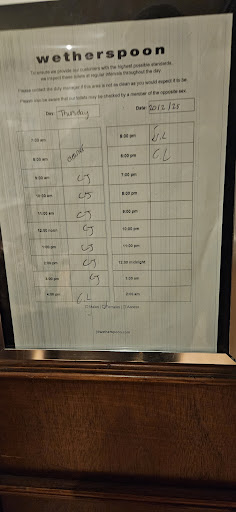 wetherspoon
To ensure we provide our customers with the highest possible standards,
we inspect these toilets at regular intervals throughout the day.
Please contact the duty manager if this area is not as clean as you would expect it to be.
Please also be aware that our toilets may be checked by a member of the opposite sex.
Day: Thursday Date:
7:00 am 5:00 pm
8:00 am 6:00 pm CL
9:00 am CJ 7:00 pm
10:00 am CJ 8:00 pm
11:00 am CJ 9:00 pm
12:00 noon CJ 10:00 pm
1:00 pm CJ 11:00 pm
2:00 pm CJ 12:00 midnight
3:00 pm CJ
4:00 pm CL